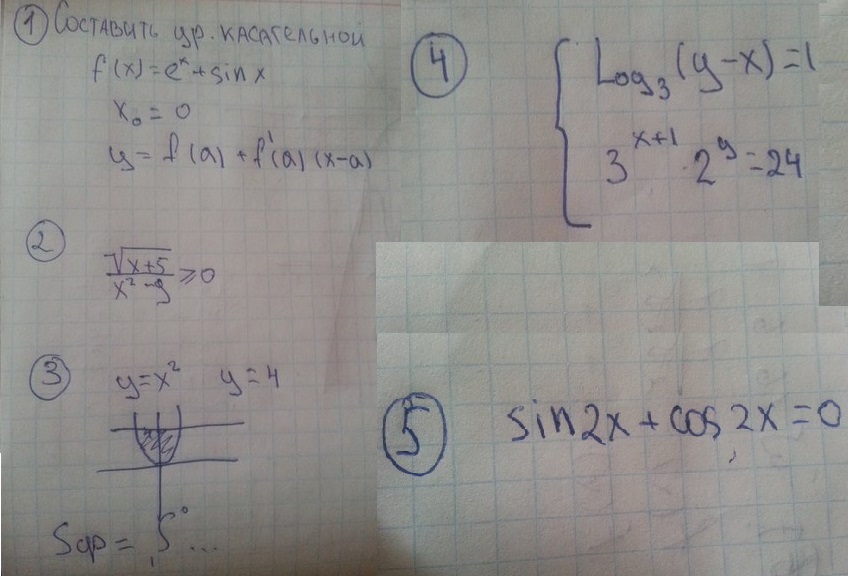 1 Составить ур. касательной
f(x) = eˣ + sin x
x₀ = 0
y = f(a) + f'(a) (x-a)
2
√(x+5) / (x² - 9) ≥ 0
3 y = x² y = 4
Sφ = ∫ ...
4
{ Log₃ (y-x) = 1
3ˣ⁺¹ · 2ʸ = 24
5 sin 2x + cos 2x = 0